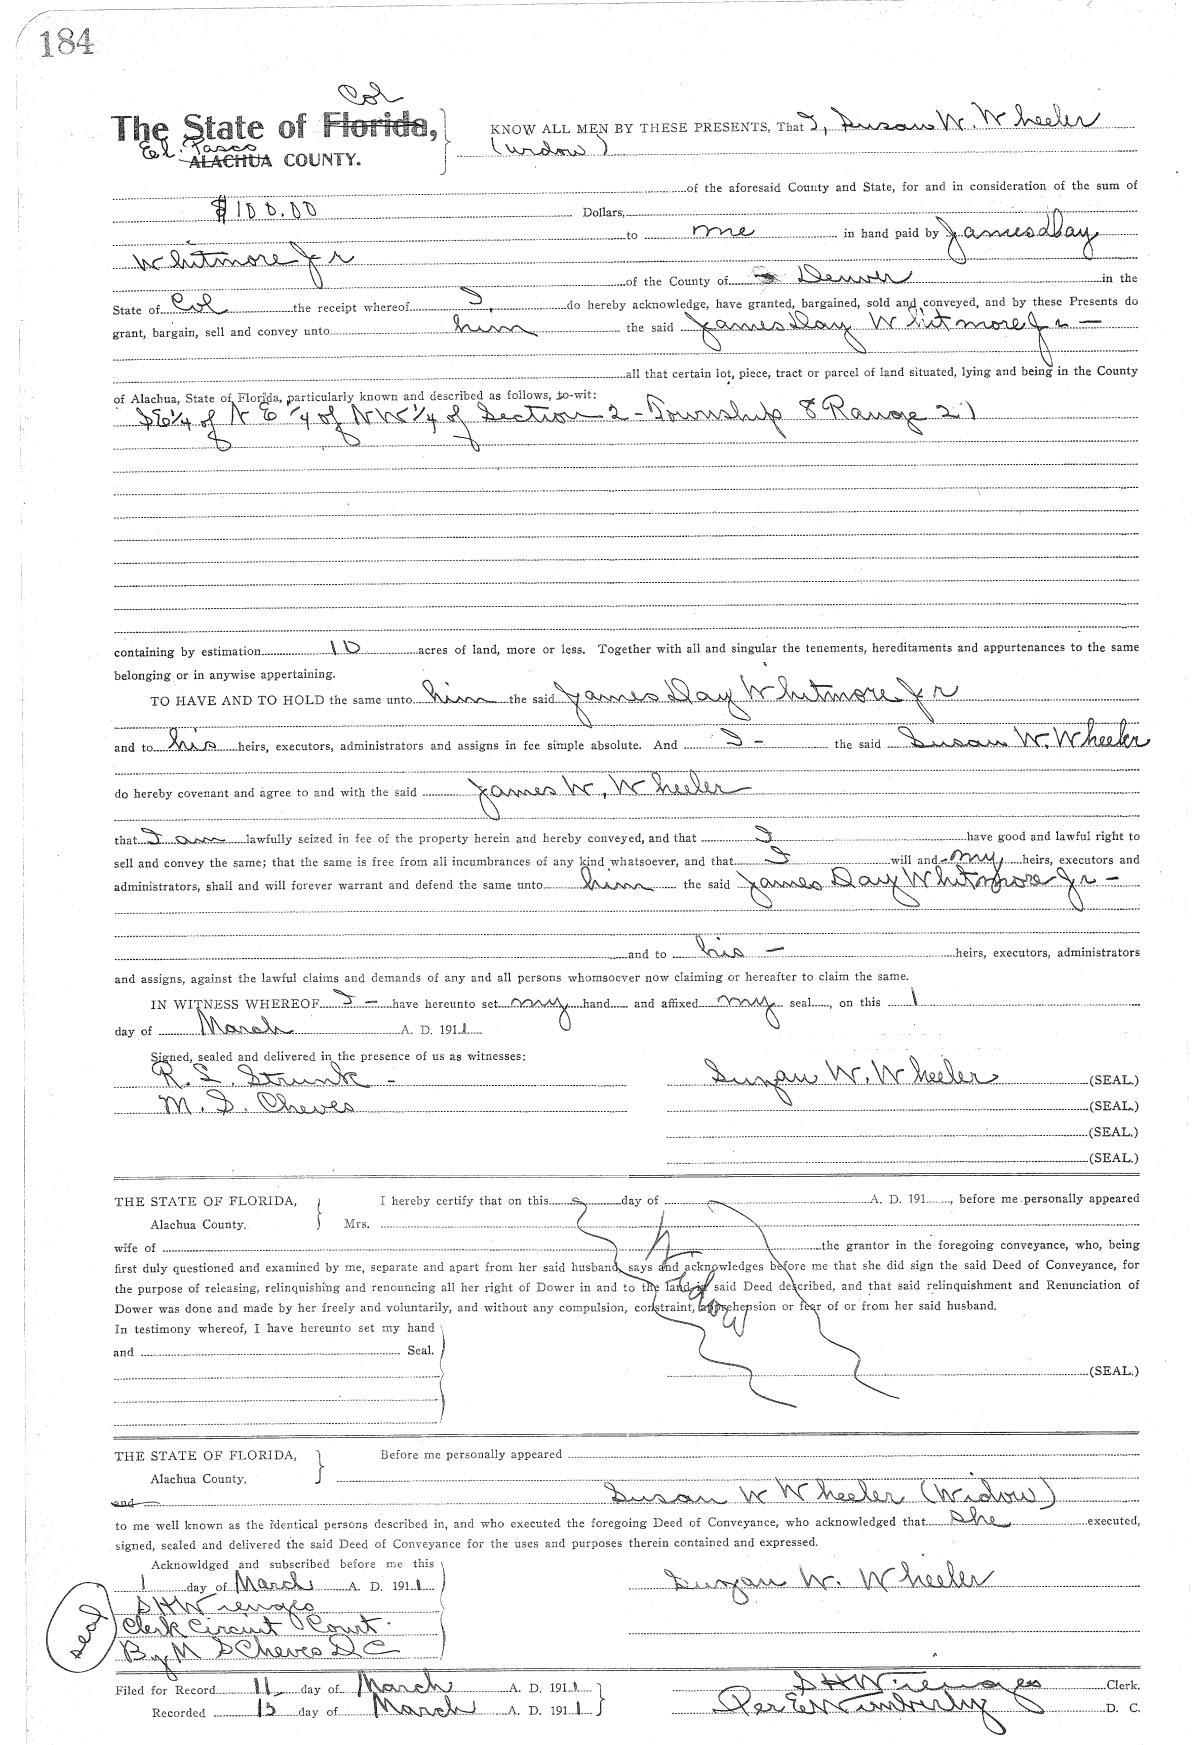 184
Col
The State of Florida, KNOW ALL MEN BY THESE PRESENTS, That I, Susan W. Wheeler
El. Pasco (widow)
ALACHUA COUNTY.
of the aforesaid County and State, for and in consideration of the sum of
$100.00 Dollars,
to me in hand paid by James Day
Whitmore Jr
of the County of Denver in the
State of Col the receipt whereof I, do hereby acknowledge, have granted, bargained, sold and conveyed, and by these Presents do
grant, bargain, sell and convey unto him the said James Day Whitmore Jr —
all that certain lot, piece, tract or parcel of land situated, lying and being in the County
of Alachua, State of Florida, particularly known and described as follows, to-wit:
SE¼ of NE¼ of NW¼ of Section 2 - Township 8 Range 21
containing by estimation 10 acres of land, more or less. Together with all and singular the tenements, hereditaments and appurtenances to the same
belonging or in anywise appertaining.
TO HAVE AND TO HOLD the same unto him the said James Day Whitmore Jr
and to his heirs, executors, administrators and assigns in fee simple absolute. And I - the said Susan W. Wheeler
do hereby covenant and agree to and with the said James W. Wheeler
that I am lawfully seized in fee of the property herein and hereby conveyed, and that I have good and lawful right to
sell and convey the same; that the same is free from all incumbrances of any kind whatsoever, and that I will and my heirs, executors and
administrators, shall and will forever warrant and defend the same unto him the said James Day Whitmore Jr -
and to his - heirs, executors, administrators
and assigns, against the lawful claims and demands of any and all persons whomsoever now claiming or hereafter to claim the same.
IN WITNESS WHEREOF I - have hereunto set my hand and affixed my seal, on this 1
day of March A. D. 1911
Signed, sealed and delivered in the presence of us as witnesses:
R. L. Strunk - Suzan W. Wheeler (SEAL.)
M. S. Cheves (SEAL.)
(SEAL.)
(SEAL.)
THE STATE OF FLORIDA, I hereby certify that on this day of A. D. 191 , before me personally appeared
Alachua County. Mrs.
wife of the grantor in the foregoing conveyance, who, being
first duly questioned and examined by me, separate and apart from her said husband, says and acknowledges before me that she did sign the said Deed of Conveyance, for
the purpose of releasing, relinquishing and renouncing all her right of Dower in and to the land in said Deed described, and that said relinquishment and Renunciation of
Dower was done and made by her freely and voluntarily, and without any compulsion, constraint, apprehension or fear of or from her said husband.
In testimony whereof, I have hereunto set my hand
and Seal.
(SEAL.)
THE STATE OF FLORIDA, Before me personally appeared
Alachua County.
and Susan W Wheeler (Widow)
to me well known as the identical persons described in, and who executed the foregoing Deed of Conveyance, who acknowledged that she executed,
signed, sealed and delivered the said Deed of Conveyance for the uses and purposes therein contained and expressed.
Acknowldged and subscribed before me this
1 day of March A. D. 1911 Suzan W. Wheeler
S H Wienges
Clerk Circuit Court.
seal
By M S Cheves D C
Filed for Record 11 day of March A. D. 1911 S H Wienges Clerk.
Recorded 13 day of March A. D. 1911 Per E Wimberly D. C.